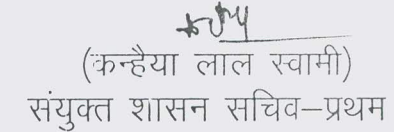 (कन्हैया लाल स्वामी)
संयुक्त शासन सचिव–प्रथम